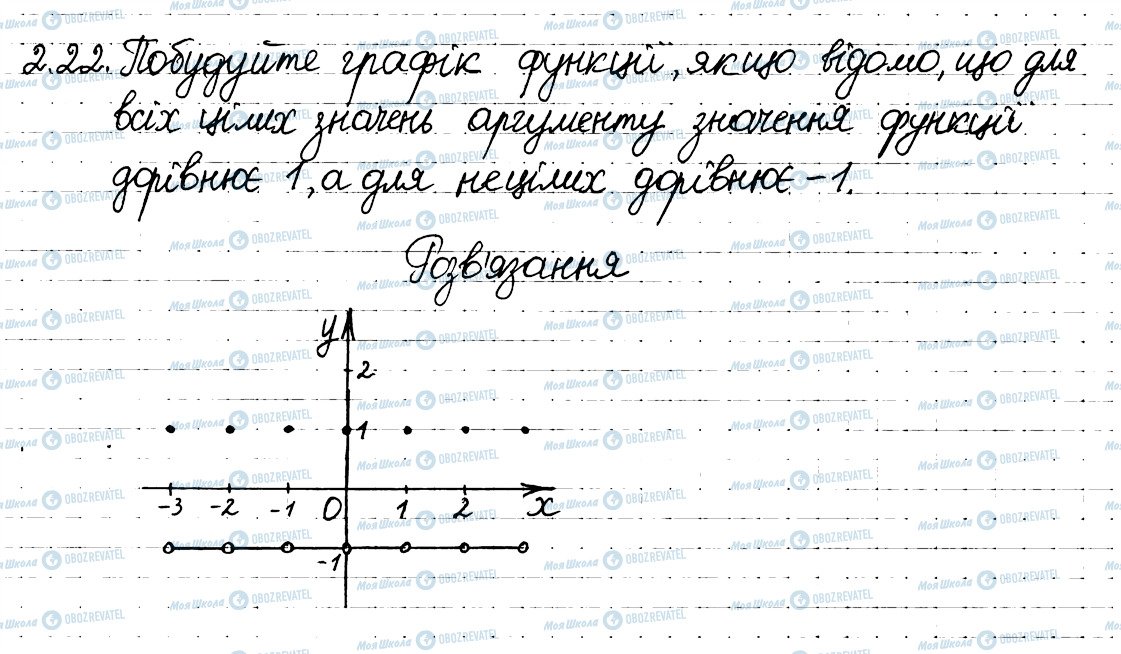 2.22. Побудуйте графік функції, якщо відомо, що для
всіх цілих значень аргументу значення функції
дорівнює 1, а для нецілих дорівнює -1.
Розв'язання
y
2
1
-3 -2 -1 0 1 2 x
-1
Моя Школа OBOZREVATEL